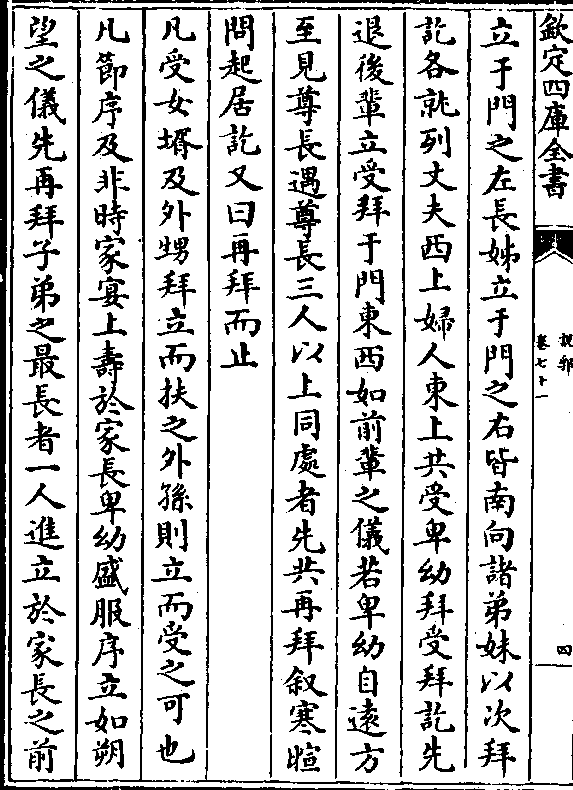 欽定四庫全書
說郛
卷七十一
四
立于門之左長姊立于門之右皆南向諸弟妹以次拜
訖各就列丈夫西上婦人東上共受卑幼拜受拜訖先
退後輩立受拜于門東西如前輩之儀若卑幼自遠方
至見尊長遇尊長三人以上同處者先共再拜叙寒暄
問起居訖又曰再拜而止
凡受女壻及外甥拜立而扶之外孫則立而受之可也
凡節序及非時家宴上壽於家長卑幼盛服序立如朔
望之儀先再拜子弟之最長者一人進立於家長之前